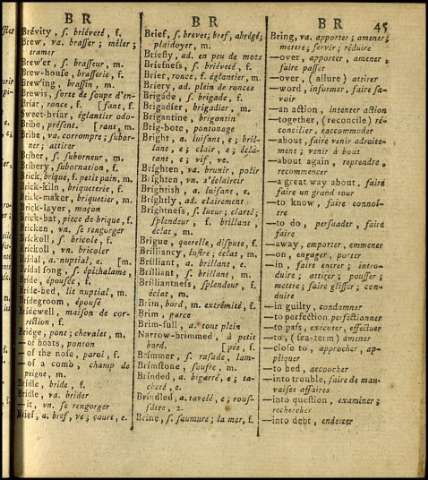 B R
B R
B R
45
Brévity, s. briéveté, f.
Brew, va. brasser; mêler;
tramer
Brew'er, s. brasseur, m.
Brew-house, brasserie, f.
Brew'ing, brassin, m.
Brewis, sorte de soupe d'in-
Briar, ronce, f. [sant, f.
Sweet-briar, églantier odo-
Bribe, présent. [rant, m.
Bribe, va. corrompre; subor-
ner; attirer
Briber, s. suborneur, m.
Bribery, subornation, f.
Brick, brique, f. petit pain, m.
Brick-kiln, briqueterie, f.
Brick-maker, briquetier, m.
Brick-layer, maçon
Brick-bat, piece de brique, f.
Bricken, vn. se rengorger
Brickoll, s. bricole, f.
Brickoll, vn. bricoler
Bridal, a. nuptial, e. [m.
Bridal song, s. épithalame,
Bride, épousée, f.
Bride-bed, lit nuptial, m.
Bridegroom, épousé
Bridewell, maison de cor-
rection, f.
Bridge, pont; chevalet, m.
—of boats, ponton
—of the nose, f.
—of a comb, champ de
peigne, m.
Bridle, bride, f.
Bridle, va. brider
—it, vn. se rengorger
Brief, a. bref, ve; court, e.
Brief, s. brevet; bref, abrégé;
plaidoyer, m.
Briefly, ad. en peu de mots
Briefness, s. briéveté, f.
Brier, ronce, f. églantier, m.
Briery, ad. plein de ronces
Brigade, s. brigade, f.
Brigadier, brigadier, m.
Brigantine, brigantin
Brig-bote, pontonage
Bright, a. luisant, e; bril-
lant, e; clair, e; écla-
tant, e; vif, ve.
Brighten, va. brunir, polir
Brighten, vn. s'éclaircir
Brightish, a. luisant, e.
Brightly, ad. clairement
Brightness, s. lueur; clarté;
splendeur, f. brillant,
éclat, m.
Brigue, querelle, dispute, f.
Brilliancy, lustre; éclat, m.
Brilliant, a. brillant, e.
Brilliant, s. brillant, m.
Brilliantness, splendeur, f.
éclat, m.
Brim, bord, m. extrémité, f.
Brim, parco
Brim-full, a. tout plein
Narrow-brimmed, à petit
bord. [pée, f.
Brimmer, s. rasade, lam-
Brimstone, soufre, m.
Brinded, a. bigarré, e; ta-
cheté, e.
Brindled, a. tavelé, e; rous-
sâtre, 2.
Brine, s. saumure; la mer, f.
Bring, va. apporter; amener;
mettre; servir; réduire
—over, apporter, amener,
faire passer
—over, (allure) attirer
—word, informer, faire sa-
voir
—an action, intenter action
—together, (reconcile) ré-
concilier, raccommoder
—about, faire venir adroite-
ment; venir à bout
—about again, reprendre,
recommencer
—a great way about, faire
faire un grand tour
—to know, faire connoî-
tre
—to do, persuader, faire
faire
—away, emporter, emmener
—on, engager, porter
—in, faire entrer; intro-
duire; attirer; pousser;
mettre; faire glisser; con-
duire
—in guilty, condamner
—to perfection, perfectionner
—to pass, executer, effectuer
—to, (sea-term) amener
—close to, approcher, ap-
pliquer
—to bed, accoucher
—into trouble, faire de mau-
vaises affaires
—into question, examiner;
rechercher
—into debt, endetter